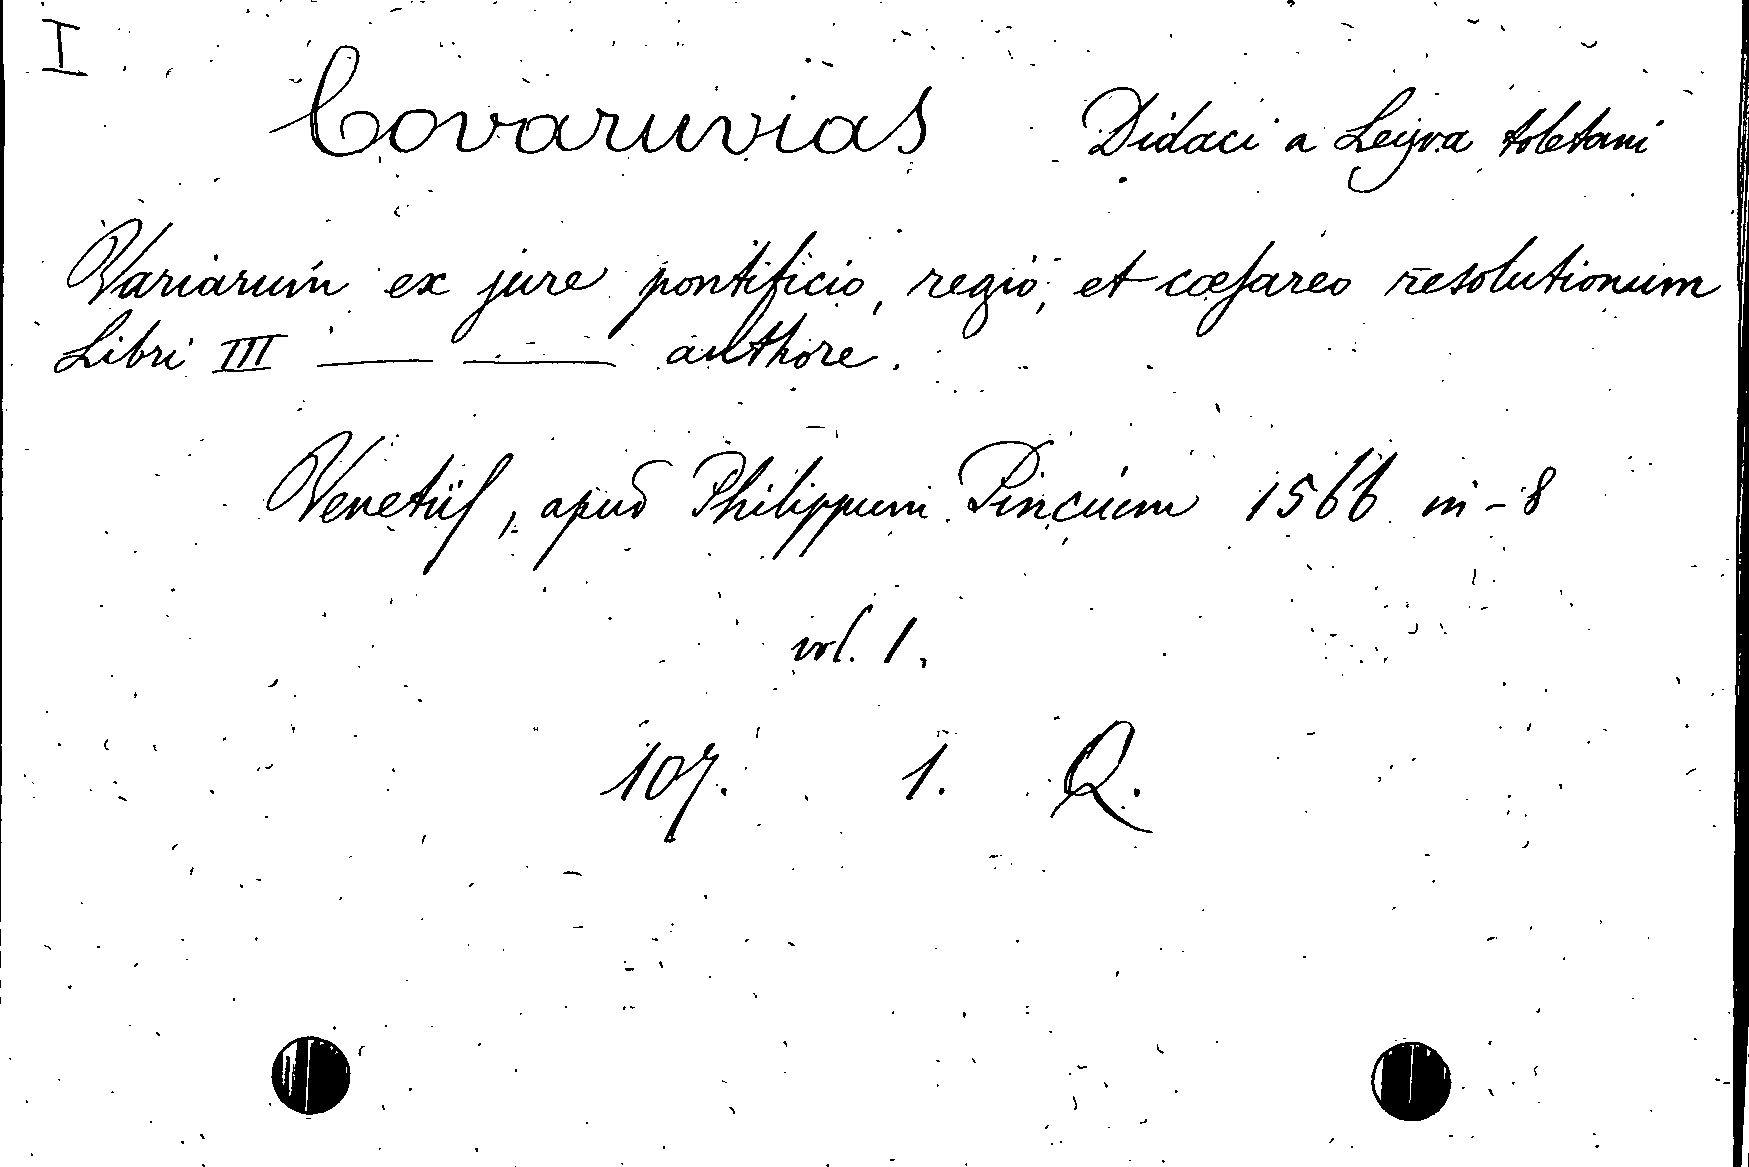 I
Covaruvias Didaci a Leyva toletani
Variarum ex jure pontificio, regio, et cæsareo resolutionum
Libri III — — authore.
Venetiis, apud Philippum Pincium 1566 in-8
vol. 1.
107. 1. Q.